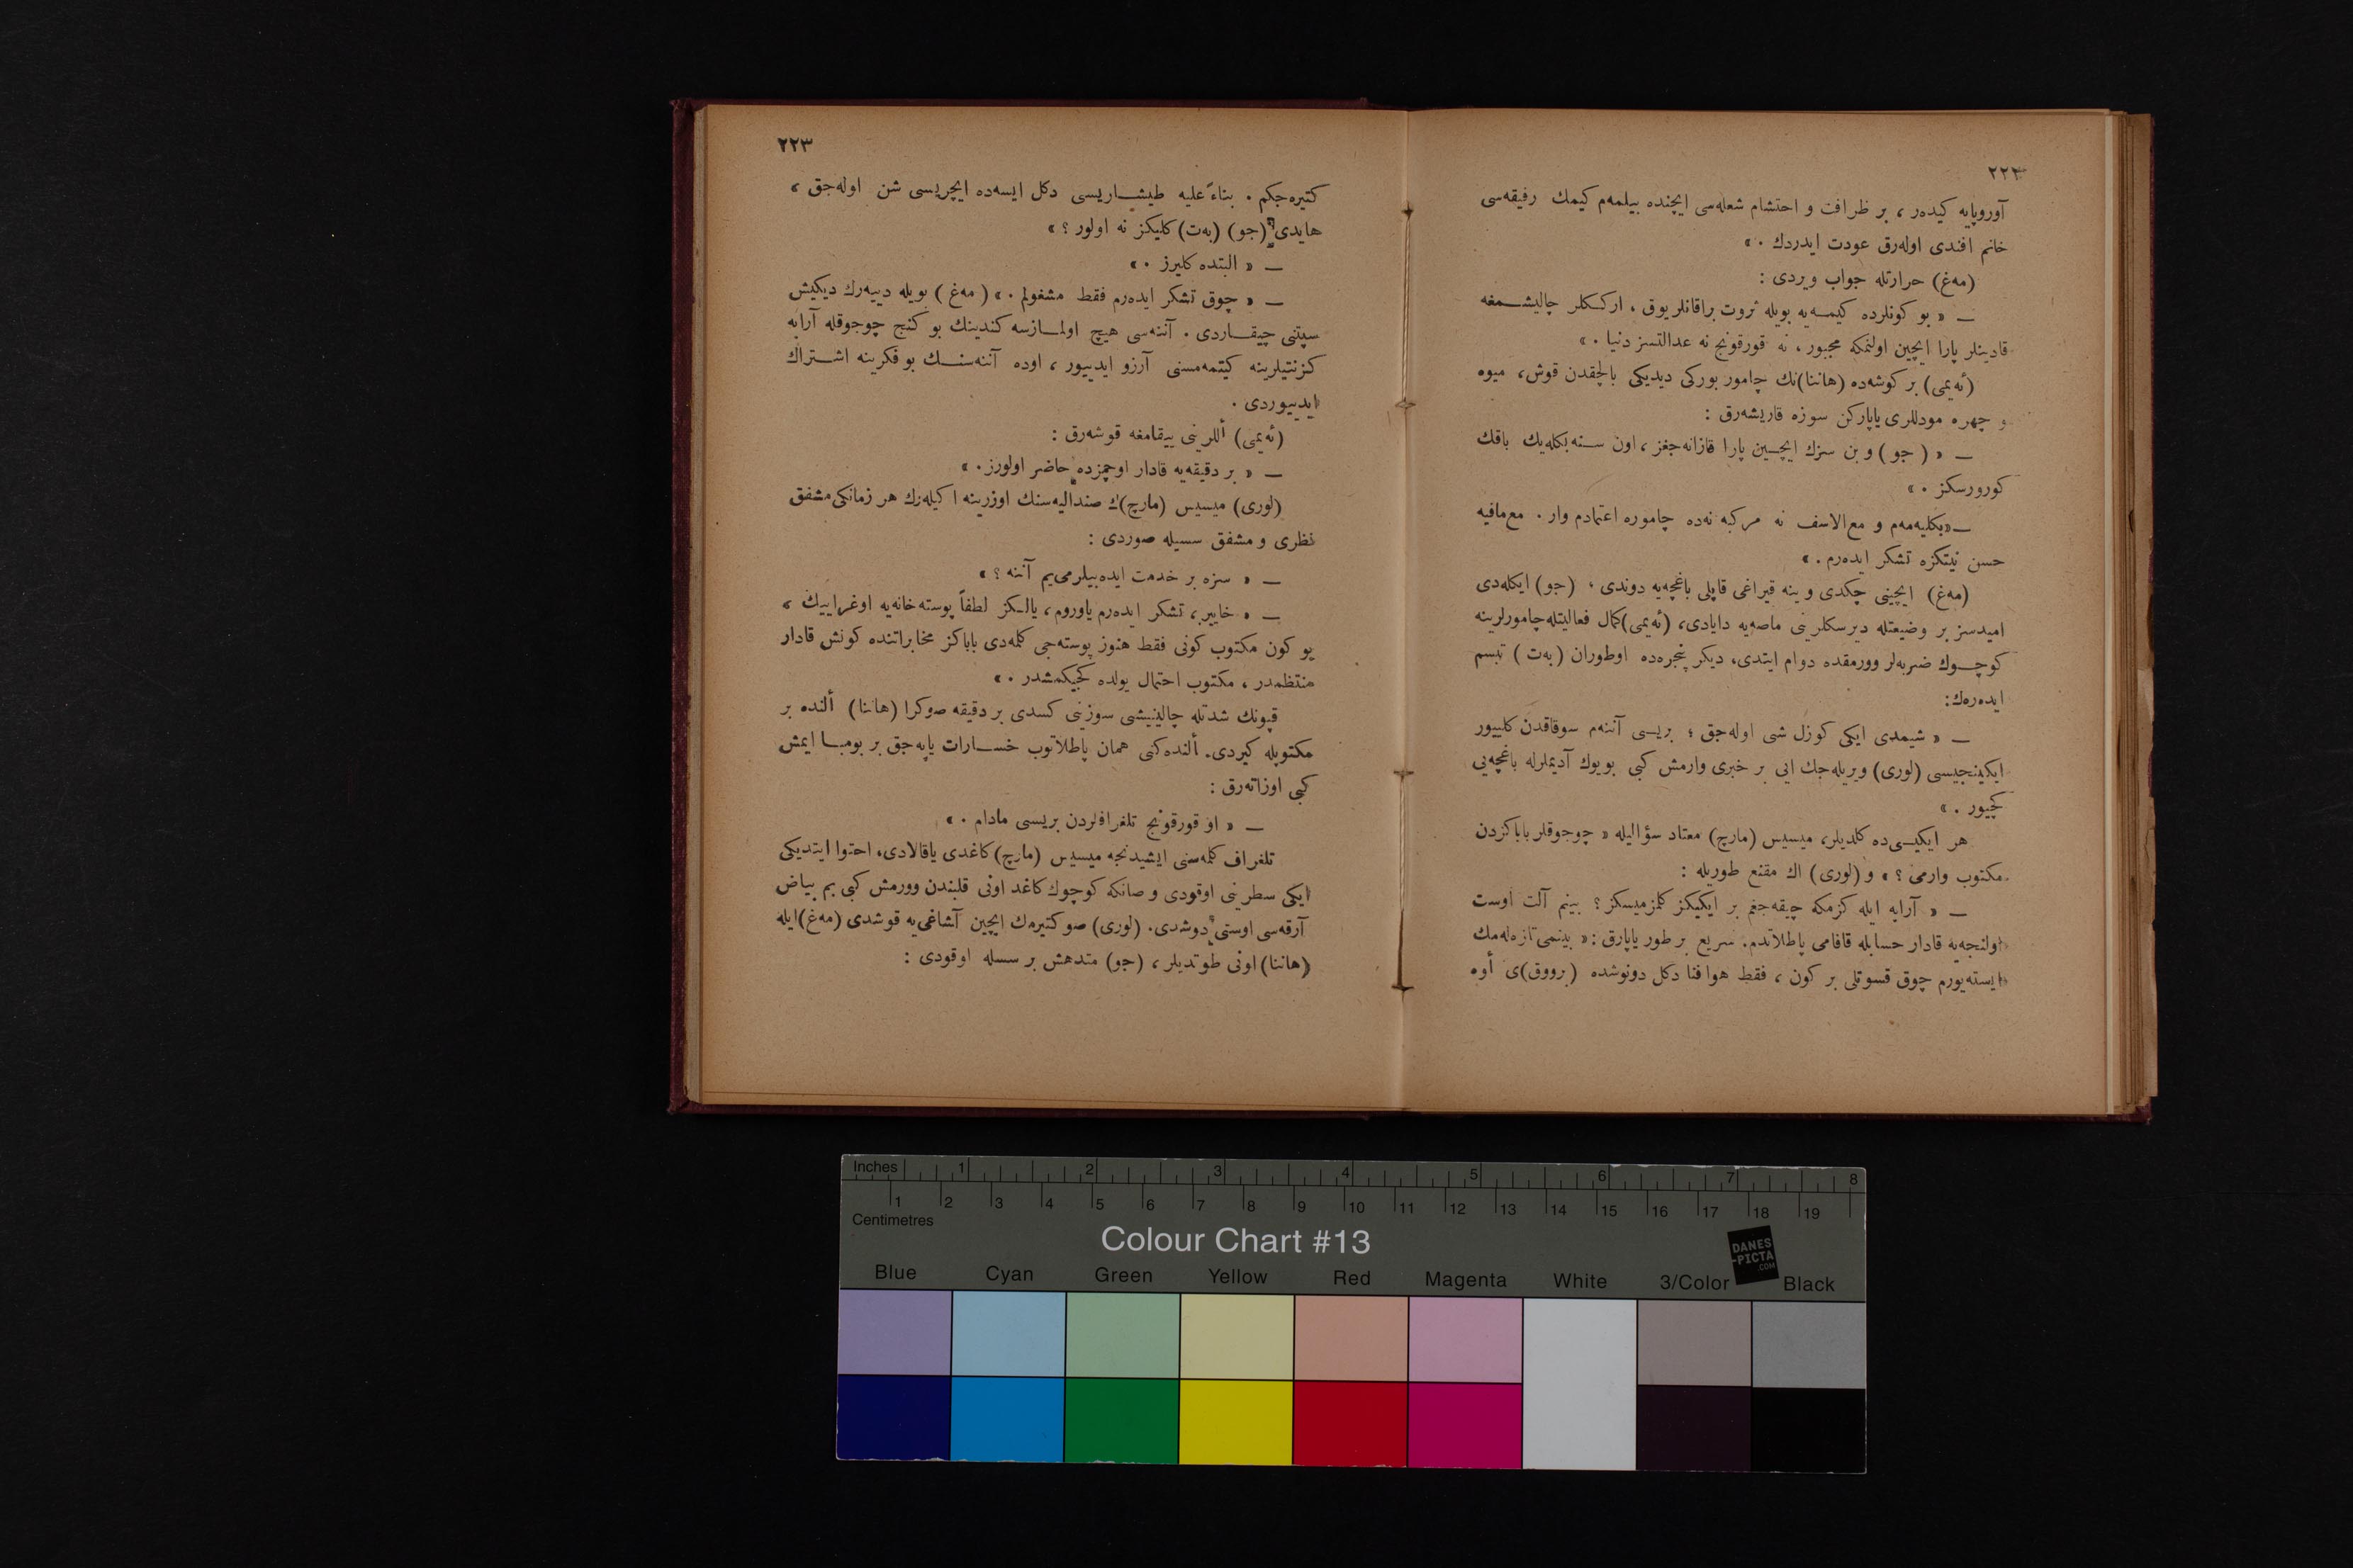 ٢٢٢
آوروپایه كیده‌ر ، بر ظرافت و احتشام شعله‌سی ایچنده بیلمه‌م كیمك رفیقه‌سی
خانم افندی اوله‌رق عودت ایدردك . »
(مه‌غ) حرارتله جواب ویردی :
— « بو كونلرده كیمسه‌یه بویله ثروت براقانلر یوق ، ارككلر چالیشمغه
قادینلر پارا ایچین اولنمكه مجبور ، نه قورقونج نه عدالتسز دنیا . »
(ئه‌یمی) بر كوشه‌ده (هاننا)نك چامور بوركی دیدیكی بالچقدن قوش، میوه
و چهره مودللری یاپاركن سوزه قاریشه‌رق :
— « (جو) و بن سزك ایچین پارا قازانه‌جغز ، اون سنه بكله‌یك باقك
كورورسكز . »
— «بكلیه‌مه‌م و مع‌الاسف نه مركبه نه‌ده چاموره اعتمادم وار . مع‌مافیه
حسن نیتكزه تشكر ایده‌رم . »
(مه‌غ) ایچینی چكدی و ینه قیراغی قاپلی باغچه‌یه دوندی ؛ (جو) ایكله‌دی
امیدسز بر وضیعتله دیرسكلرینی ماصه‌یه دایادی، (ئه‌یمی)كمال فعالیتله‌چامورلرینه
كوچوك ضربه‌لر وورمقده دوام ایتدی، دیكر پنجره‌ده اوطوران (به‌ت) تبسم
ایده‌ره‌ك:
— « شیمدی ایكی كوزل شی اوله‌جق ؛ بریسی آننه‌م سوقاقدن كلییور
ایكینجیسی (لوری) ویریله‌جك ایی بر خبری وارمش كبی بویوك آدیملرله باغچه‌یی
كچیور . »
هر ایكیسی‌ده كلدیلر، میسیس (مارچ) معتاد سؤالیله « چوجوقلر باباكزدن
مكتوب وارمی ؟ » و (لوری) اك مقنع طوریله :
— « آرابه ایله كزمكه چیقه‌جغم بر ایكیكز كلمزمیسكز ؟ بینم آلت اوست
اولنجه‌یه قادار حسابله قافامی پاطلاتدم. سریع بر طور یاپارق :« بینمی تازه‌له‌مك
ایسته‌یورم چوق قسوتلی بر كون ، فقط هوا فنا دكل دونوشده (برووق)ی أوه
٢٢٣
كتیره‌جكم . بناءً علیه طیشاریسی دكل ایسه‌ده ایچریسی شن اوله‌جق ،
هایدی (جو) (به‌ت) كلیكز نه اولور ؟ »
— « البتده كلیرز . »
— « چوق تشكر ایده‌رم فقط مشغولم . » ( مه‌غ ) بویله دییه‌رك دیكیش
سپتنی چیقاردی . آننه‌سی هیچ اولمازسه كندینك بو كنج چوجوقله آرابه
كزنتیلرینه كیتمه‌مسنی آرزو ایدییور ، اوده آننه‌سنك بو فكرینه اشتراك
ایدییوردی .
(ئه‌یمی) أللرینی ییقامغه قوشه‌رق :
— « بر دقیقه‌یه قادار اوچمزده حاضر اولورز. »
(لوری) میسیس (مارچ)ك صندالیه‌سنك اوزرینه اكیله‌رك هر زمانكی مشفق
نظری و مشفق سسیله صوردی :
— « سزه بر خدمت ایده‌بیلرمی‌یم آننه ؟ »
— « خایر ، تشكر ایده‌رم یاوروم ، یالكز لطفاً پوسته‌خانه‌یه اوغراییك ،
بو كون مكتوب كونی فقط هنوز پوسته‌جی كلمه‌دی باباكز مخابراتنده كونش قادار
منتظمدر ، مكتوب احتمال یولده كجیكمشدر . »
قپونك شدتله چالینیشی سوزینی كسدی بر دقیقه صوكرا (هاننا) ألنده بر
مكتوبله كیردی. ألنده‌كی همان پاطلاتوب خسارات یاپه‌جق بر بومبا ایمش
كبی اوزاته‌رق :
— « او قورقونج تلغرافلردن بریسی مادام . »
تلغراف كلمه‌سنی ایشیدنجه میسیس (مارچ)كاغدی یاقالادی، احتوا ایتدیكی
ایكی سطرینی اوقودی و صانكه كوچوك كاغد اونی قلبندن وورمش كبی بم بیاض
آرقه‌سی اوستی دوشدی. (لوری) صو كتیرمك ایچین آشاغی‌یه قوشدی (مه‌غ)ایله
(هاننا) اونی طوتدیلر ، (جو) متدهش بر سسله اوقودی :
Inches 1 2 3 4 5 6 7 8
1 2 3 4 5 6 7 8 9 10 11 12 13 14 15 16 17 18 19
Centimetres
Colour Chart #13
DANES
-PICTA
.COM
Blue Cyan Green Yellow Red Magenta White 3/Color Black